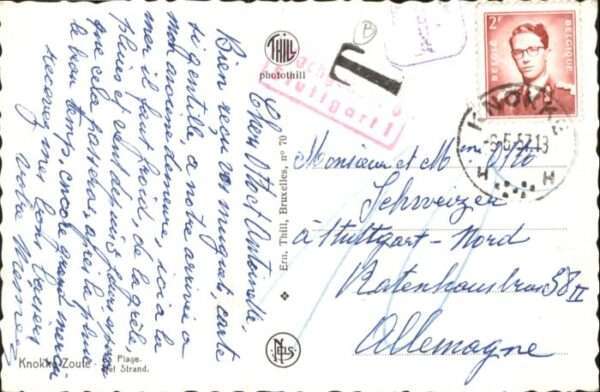 Chers Otto et Antoinette,
Bien reçu vos muguet, carte
si gentille, a notre arrivée à
la mer il faut froid, de la grèle,
pluies et vent depuis
que cela passera, après la pluie
le beau temps, encore grand merci
recevez mes bons baisers
votre
Knokke-Zoute
Plage.
Het Strand.
THILL
photothill
Ern. Thill, Bruxelles, n° 70
NELS
T
B
Stuttgart 1
2F
BELGIE BELGIQUE
KNOKKE
-6.5.57.13
H H
Monsieur et Mme Otto
Schweizer
à Stuttgart-Nord
Ratenhausbrus 58 II
Allemagne